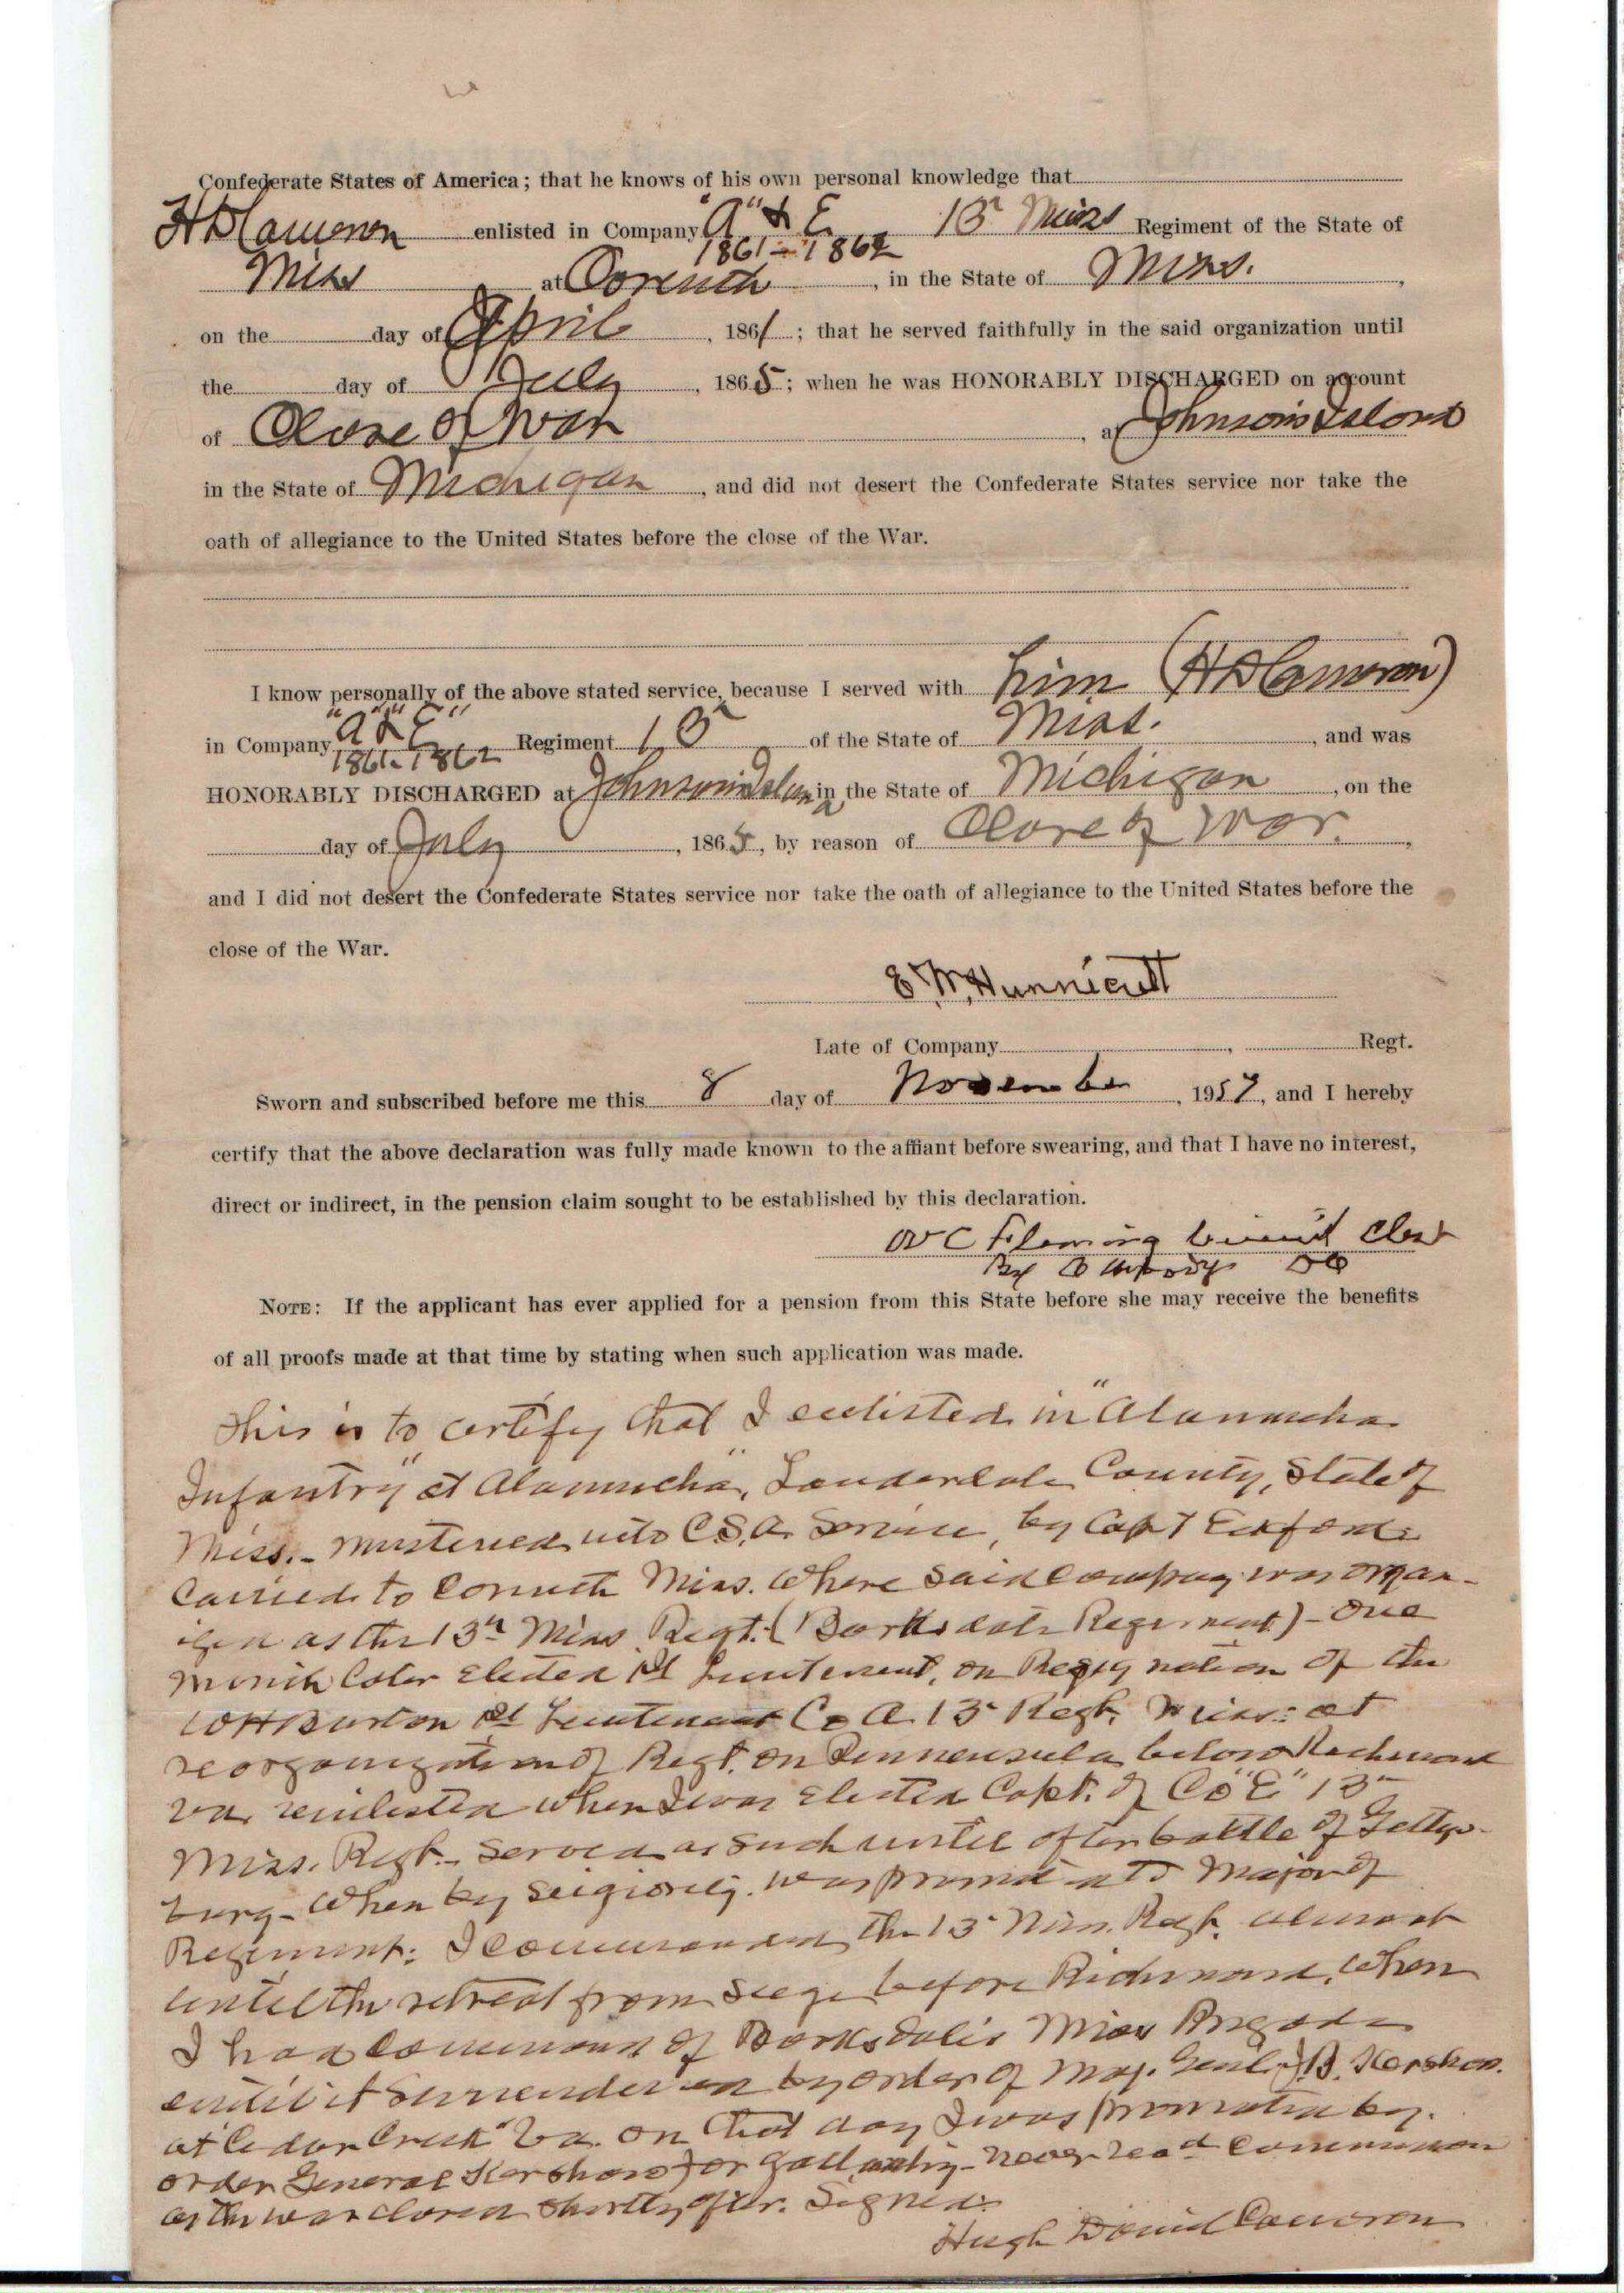 Confederate States of America; that he knows of his own personal knowledge that
H D Cameron enlisted in Company "A" & E 13" Miss Regiment of the State of
1861 - 1862
Miss at Corinth, in the State of Miss.,
on the day of April, 1861; that he served faithfully in the said organization until
the day of July, 1865; when he was HONORABLY DISCHARGED on account
of Close of War, at Johnson's Island
in the State of Michigan, and did not desert the Confederate States service nor take the
oath of allegiance to the United States before the close of the War.
I know personally of the above stated service, because I served with him (H D Cameron)
in Company "A" & "E" Regiment 13" of the State of Miss., and was
1861 - 1862
HONORABLY DISCHARGED at Johnson's Island in the State of Michigan, on the
day of July, 1865, by reason of Close of War.,
and I did not desert the Confederate States service nor take the oath of allegiance to the United States before the
close of the War.
E. W. Hunnicutt
Late of Company , Regt.
Sworn and subscribed before me this 8 day of November, 19 , and I hereby
certify that the above declaration was fully made known to the affiant before swearing, and that I have no interest,
direct or indirect, in the pension claim sought to be established by this declaration.
W C Fleming Circuit Clerk
By DC
NOTE: If the applicant has ever applied for a pension from this State before she may receive the benefits
of all proofs made at that time by stating when such application was made.
This is to certify that I enlisted in "Alamucha
Infantry" at Alamucha", Lauderdale County, State of
Miss. - mustered into C.S.A. Service, by Capt Eckford
Carried to Corinth Miss. Where said Company was organ-
ized as the 13" Miss. Regt. (Barksdale Regiment) - One
month later Elected 1st Lieutenant, on Resignation of the
W H Burton 1st Lieutenant Co A. 13" Regt. Miss: at
reorganization of Regt. on Penensula below Richmond
Va. reinlisted when I was Elected Capt. of Co "E" 13"
Miss. Regt. - Served as such until after battle of Gettys-
burg - When by was promoted to Major of
Regiment: I commanded the 13" Miss. Regt. almost
until the retreat from Seige before Richmond, When
I had command of Barksdale's Miss Brigade
until it surrendered by order of Maj. Genl. J. B. Kershaw.
at "Cedar Creek" Va. on that day I was promoted by.
order General Kershaw for gallantry - never command
as the war closed shortly after. Signed:
Hugh David Cameron